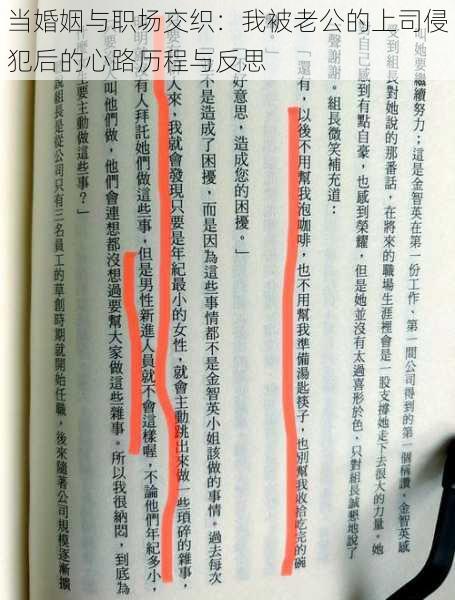 当婚姻与职场交织：我被老公的上司侵
犯后的心路历程与反思
叫她要繼續努力；這是金智英在第一份工作、第一間公司得到的第一個稱讚，金智英感
受到組長對她說的那番話，在將來的職場生涯裡會是一股支撐她走下去很大的力量。她
自己感到有點自豪，也感到榮耀，但是她並沒有太過喜形於色，只對組長誠懇地說了
聲謝謝。組長微笑補充道：
「還有，以後不用幫我泡咖啡，也不用幫我準備湯匙筷子，也別幫我收拾吃完的碗
好意思，造成您的困擾。」
不是造成了困擾，而是因為這些事情都不是金智英小姐該做的事情。過去每次
有新人來，我就會發現，只要是年紀最小的女性，就會主動跳出來做一些瑣碎的雜事，
明明沒有人拜託她們做這些事，但是男性新進人員就不會這樣喔，不論他們年紀多小，
人叫他們做，他們會連想都沒想過要幫大家做這些雜事。所以我很納悶，到底為
主要主動做這些事？」
組長是從公司只有三名員工的草創時期就開始任職，後來隨著公司規模逐漸擴